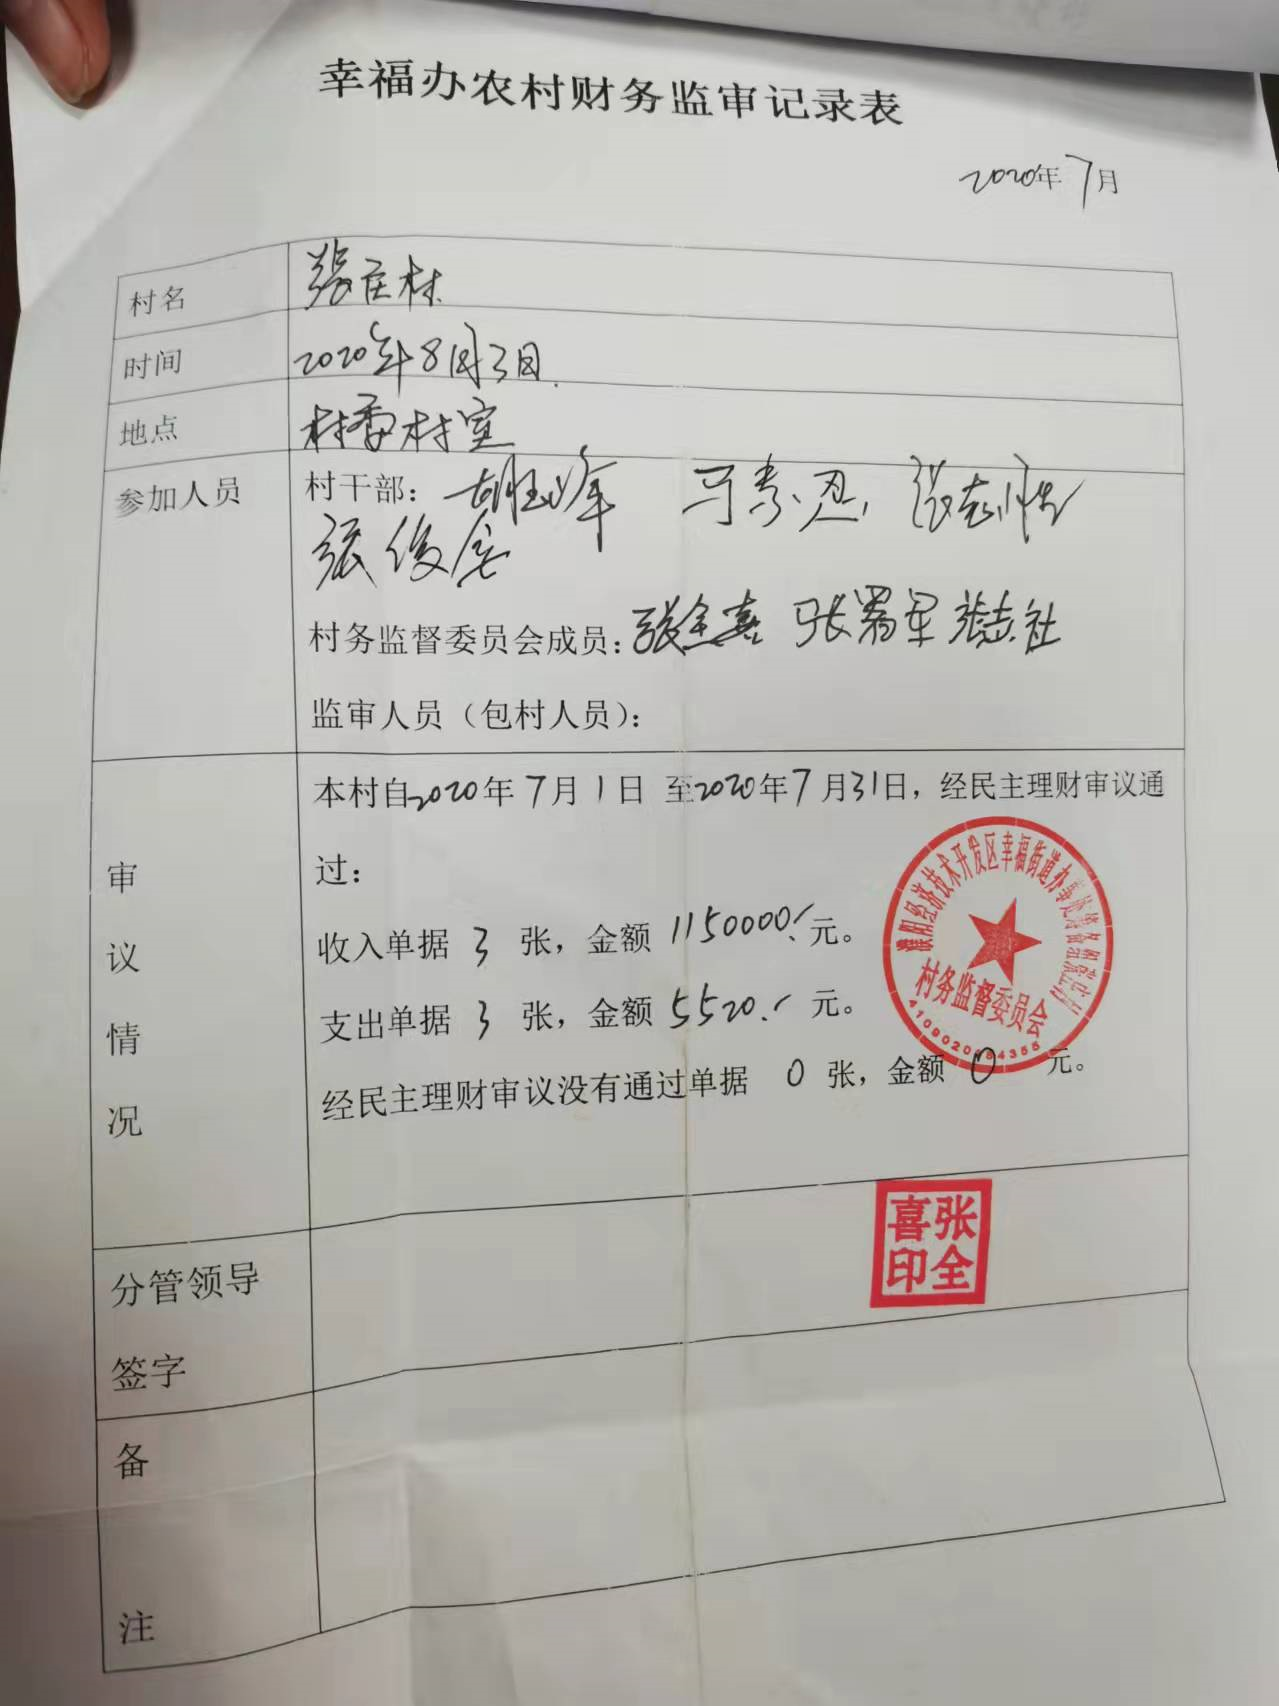 幸福办农村财务监审记录表
2020年7月
村名 张庄村
时间 2020年8月3日
地点 村委村室
参加人员 村干部：
张俊
村务监督委员会成员：张全喜 张 军 张志社
监审人员（包村人员）：
审议情况 本村自2020年7月1日 至2020年7月31日，经民主理财审议通
过：
收入单据 3 张，金额 1150000.- 元。
支出单据 3 张，金额 5520.- 元。
经民主理财审议没有通过单据 0 张，金额 0 元。
濮阳经济技术开发区幸福街道办事处
村务监督委员会
分管领导
签字
张全喜印
备
注